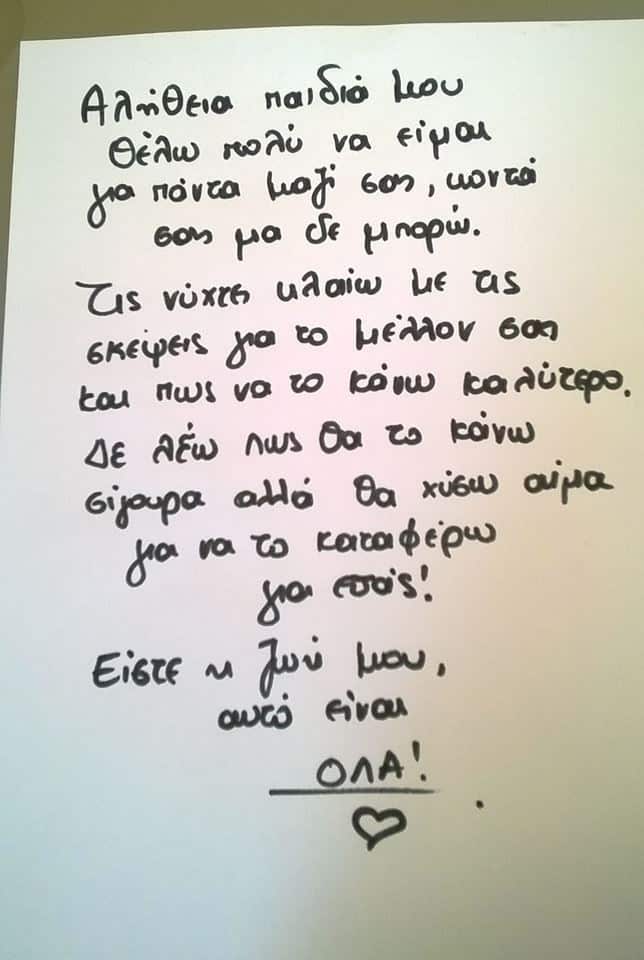 Αλήθεια παιδιά μου
Θέλω πολύ να είμαι
για πάντα μαζί σας, κοντά
σας μα δε μπορώ.
Τις νύχτες κλαίω με τις
σκέψεις για το μέλλον σας
και πως να το κάνω καλύτερο.
Δε λέω πως θα το κάνω
σίγουρα αλλά θα χύσω αίμα
για να το καταφέρω
για εσάς!
Είστε η ζωή μου,
αυτό είναι
ΟΛΑ!